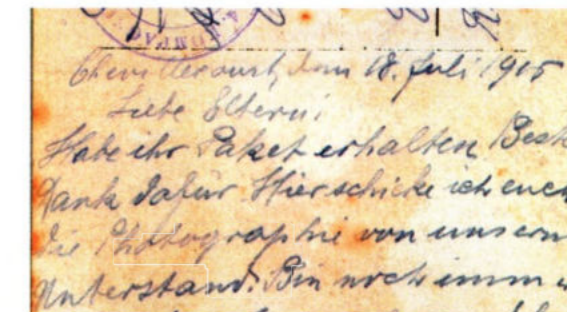 den 18. Juli 1915
Liebe Eltern!
Habe ihr Paket erhalten Best
Dank dafür Hier schicke ich euch
die Photographie von unsern
Unterstand. Bin noch imm